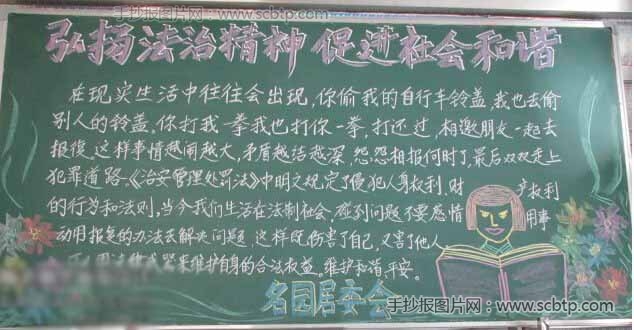 手抄报图片网:www.scbtp.com
弘扬法治精神 促进社会和谐
在现实生活中往往会出现,你偷我的自行车铃盖,我也去偷
别人的铃盖,你打我一拳我也打你一拳,打还过,相邀朋友一起去
报复。这样事情越闹越大,矛盾越活越深,怨怨相报何时了,最后双双走上
犯罪道路。《治安管理处罚法》中明文规定了侵犯人身权利,财产权利
的行为和法则,当今我们生活在法制社会,碰到问题不要感情用事
动用报复的办法去解决问题,这样既伤害了自己,又害了他人
来维护自身的合法权益。维护和谐平安。
名园居安会
手抄报图片网:www.scbtp.com